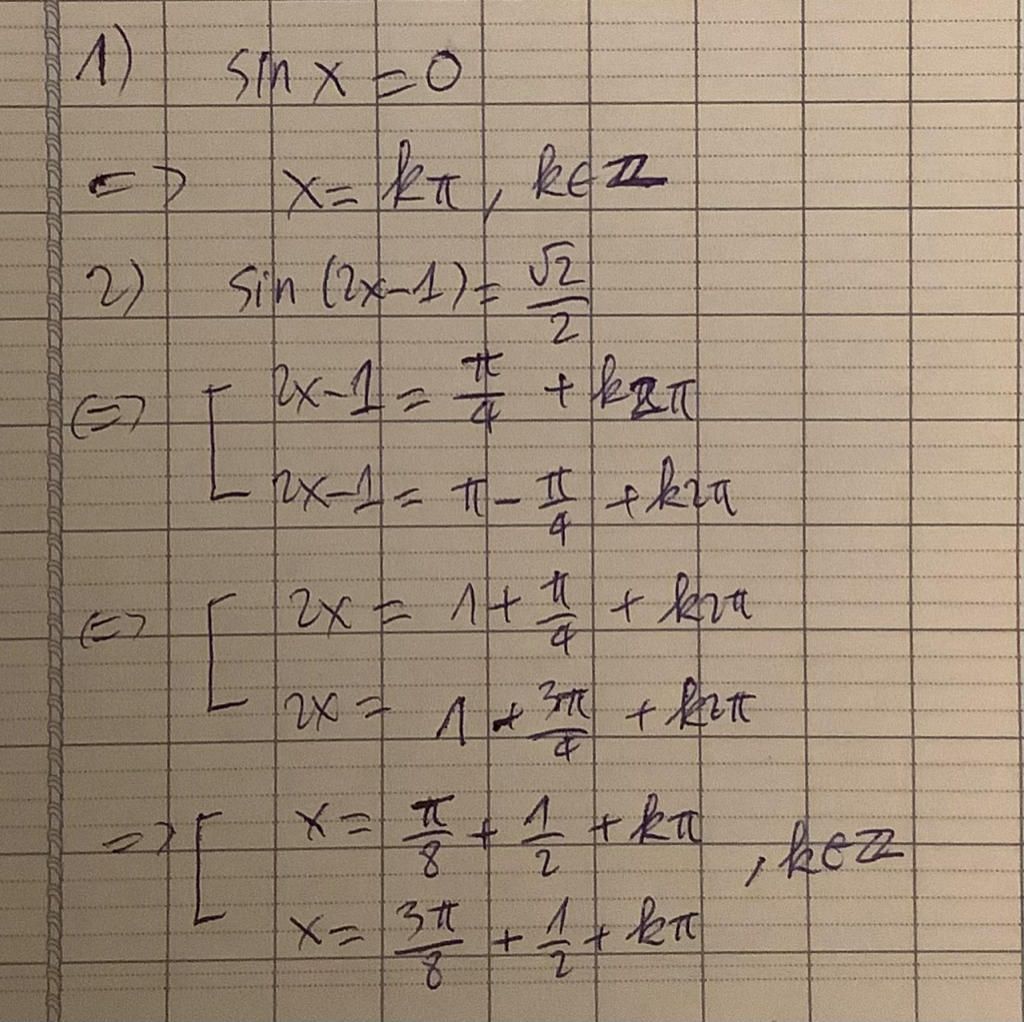 1) sin x = 0
=> x = kπ, k∈ℤ
2) sin (2x-1) = √2/2
<=> [ 2x-1 = π/4 + k2π
2x-1 = π - π/4 + k2π
<=> [ 2x = 1 + π/4 + k2π
2x = 1 + 3π/4 + k2π
=> [ x = π/8 + 1/2 + kπ , k∈ℤ
x = 3π/8 + 1/2 + kπ